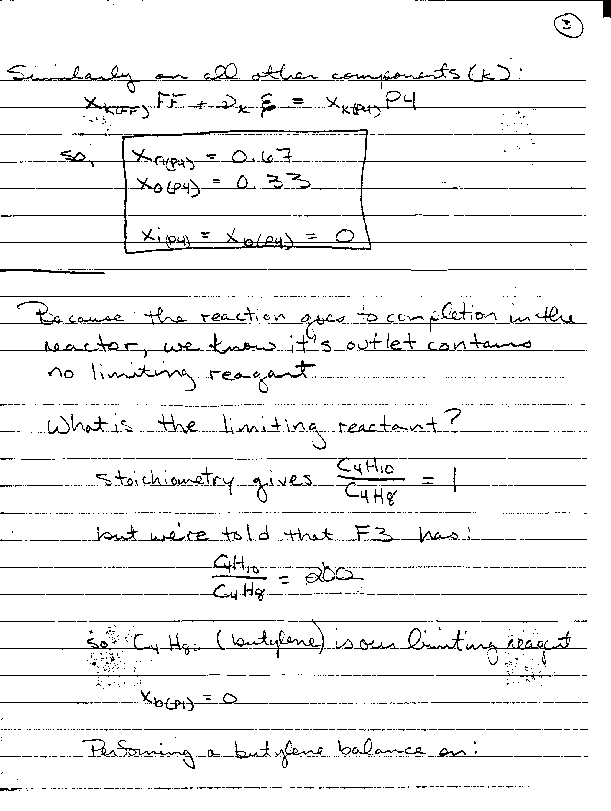 3
Similarly on all other components (k):
x_k(FF) FF + ν_k ξ = x_k(P4) P4
so, x_n(P4) = 0.67
x_o(P4) = 0.33
x_i(P4) = x_b(P4) = 0
Because the reaction goes to completion in the
reactor, we know it's outlet contains
no limiting reagant
What is the limiting reactant?
Stoichiometry gives C4H10/C4H8 = 1
but we're told that F3 has:
C4H10/C4H8 = 200
so C4H8 (butylene) is our limiting reagent
x_b(P1) = 0
Performing a butylene balance on: